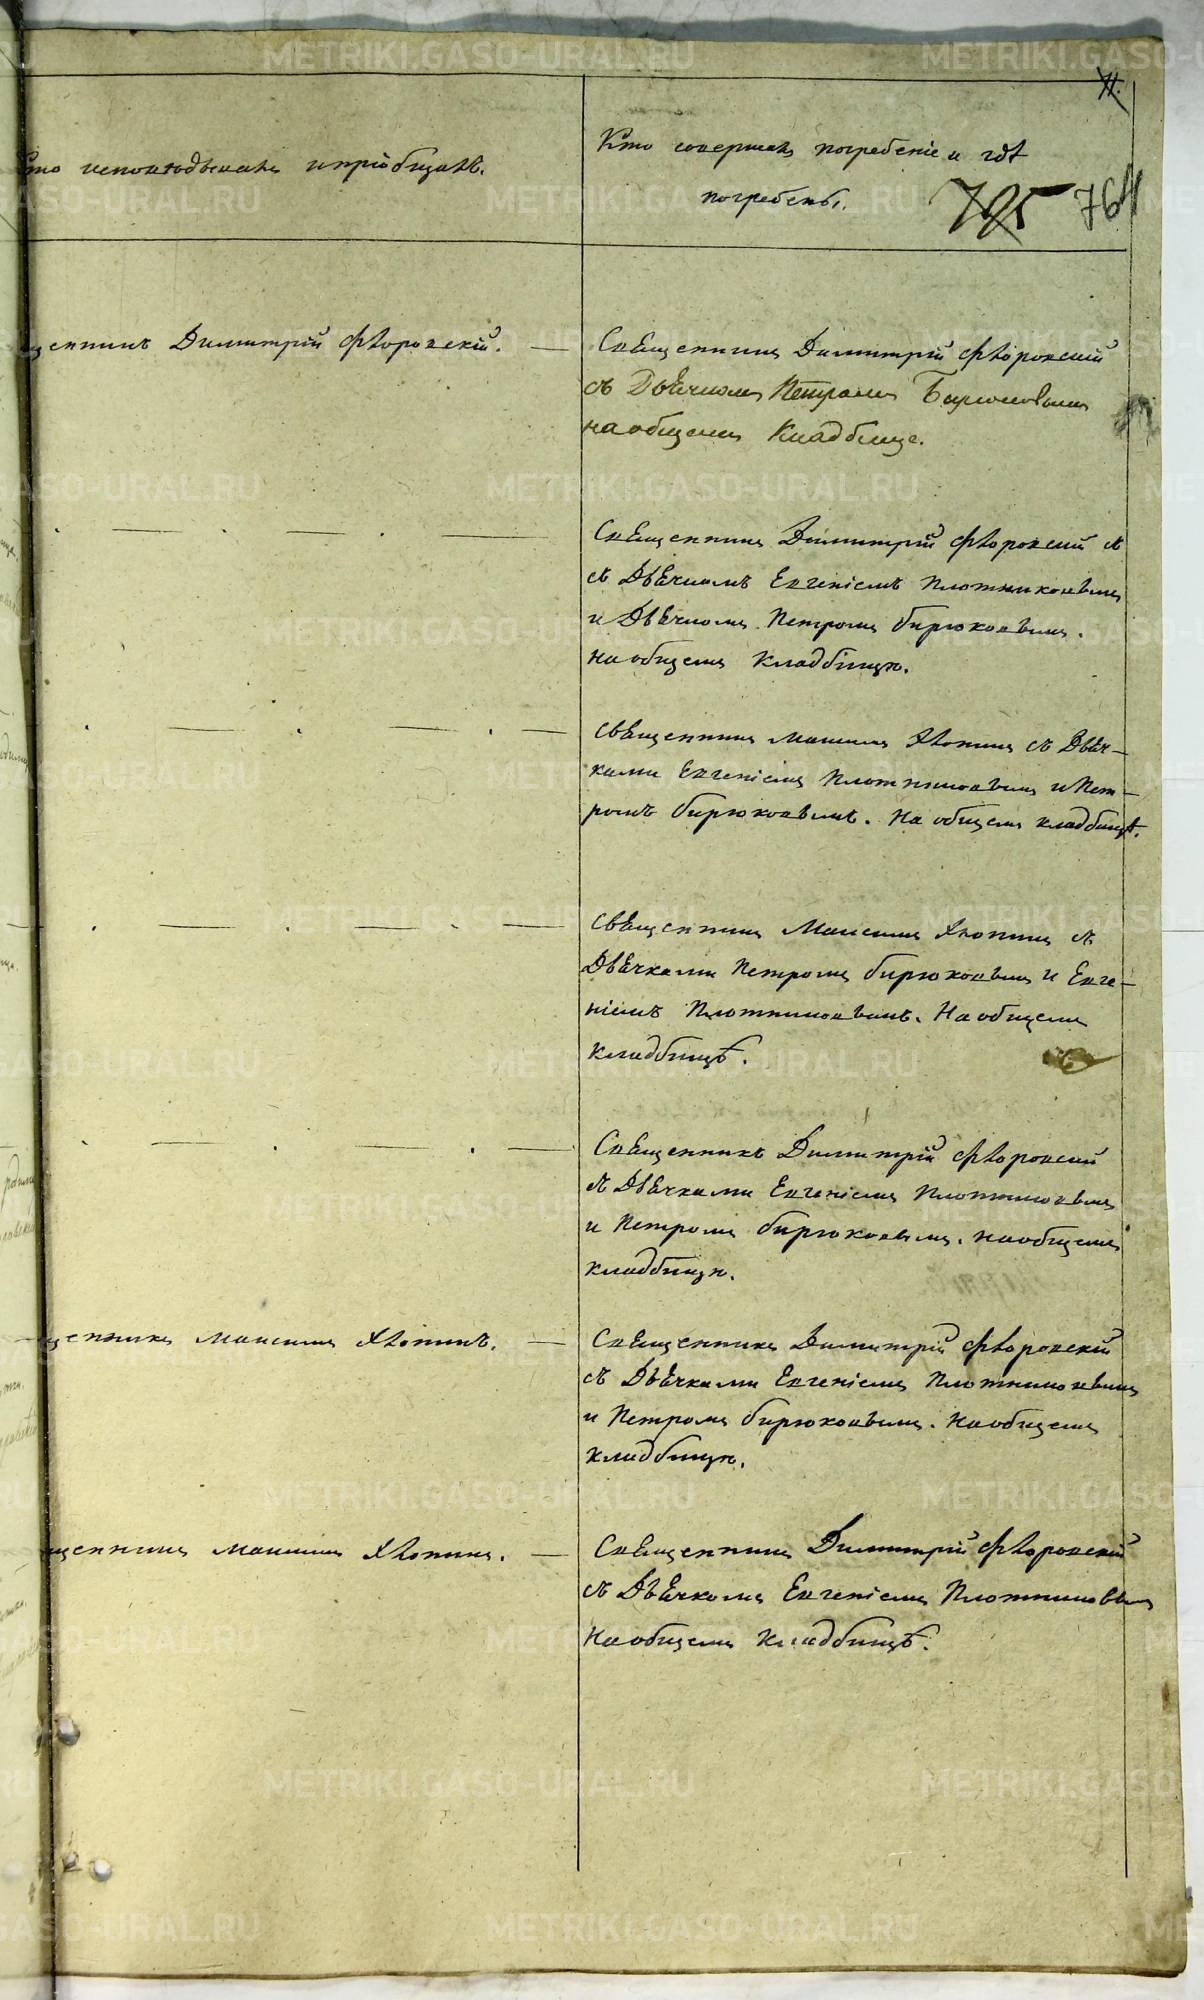 71.
Кто исповѣдывалъ и пріобщалъ.
Кто совершалъ погребеніе и гдѣ
погребены.
705 764
щенникъ Димитрій Флоровскій.
Священникъ Димитрій Флоровскій
съ Дьячкомъ Петромъ Бирюковымъ
на общемъ Кладбище.
Священникъ Димитрій Флоровскій съ
съ Дьячкомъ Евгеніемъ Плотниковымъ
и Дьячкомъ Петромъ Бирюковымъ.
на общемъ Кладбищѣ.
Священникъ Максимъ Хлопинъ съ Дьяч-
ками Евгеніемъ Плотниковымъ и Пет-
ромъ Бирюковымъ. На общемъ кладбищѣ.
Священникъ Максимъ Хлопинъ съ
Дьячками Петромъ Бирюковымъ и Евге-
ніемъ Плотниковымъ. На общемъ
кладбищѣ.
Священникъ Димитрій Флоровскій
съ Дьячками Евгеніемъ Плотниковымъ
и Петромъ Бирюковымъ. на общемъ
кладбищѣ.
щенникъ Максимъ Хлопинъ.
Священникъ Димитрій Флоровскій
съ Дьячками Евгеніемъ Плотниковымъ
и Петромъ Бирюковымъ. На общемъ
кладбищѣ.
щенникъ Максимъ Хлопинъ.
Священникъ Димитрій Флоровскій
съ Дьячкомъ Евгеніемъ Плотниковымъ
На общемъ кладбищѣ.
METRIKI.GASO-URAL.RU